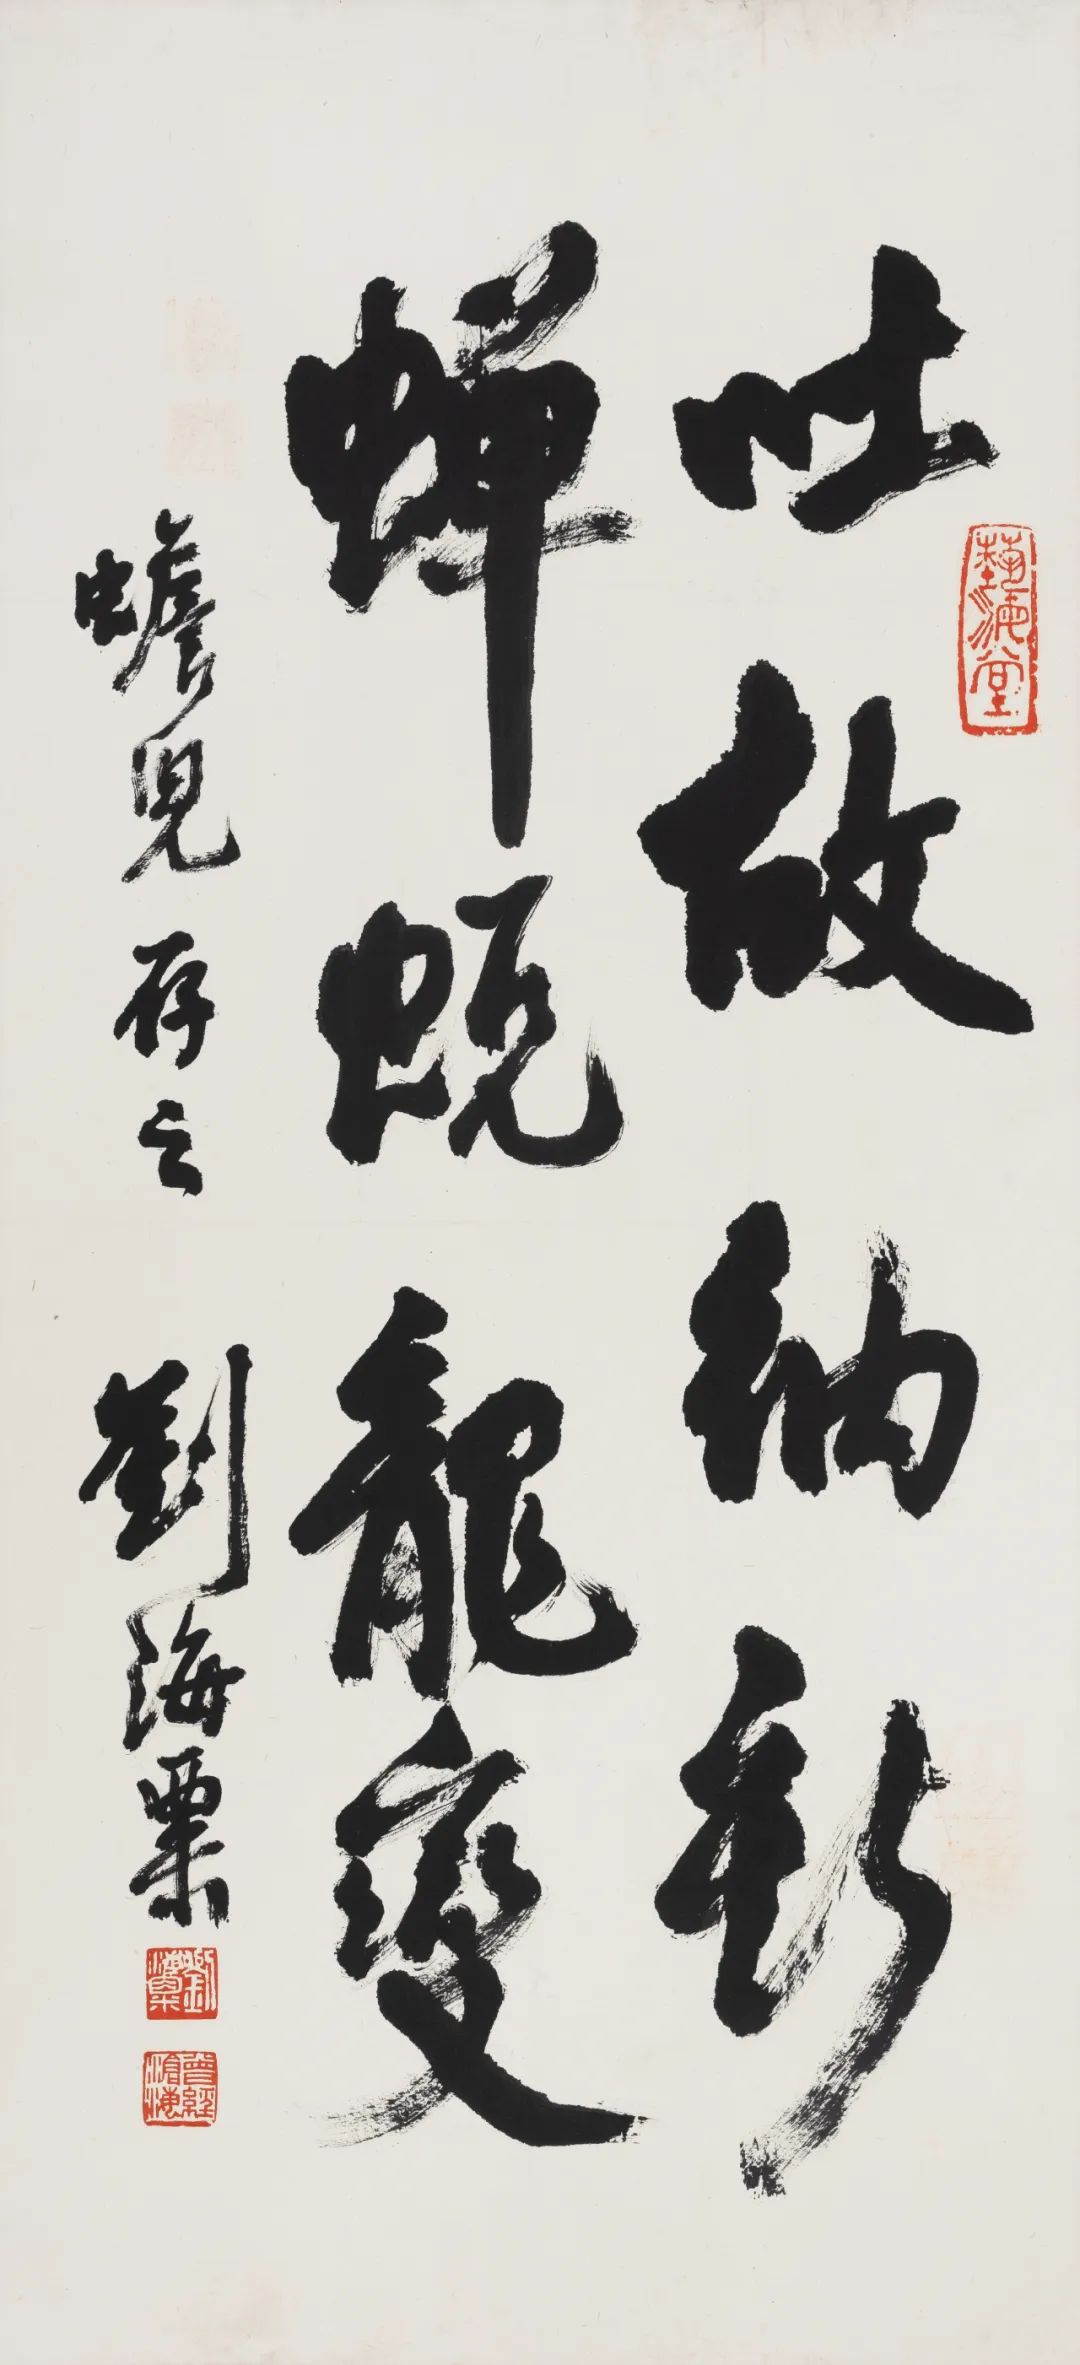 吐故納新
蟬蛻龍變
蟾兒存之 劉海粟
藝海堂
劉海粟
曾經滄海